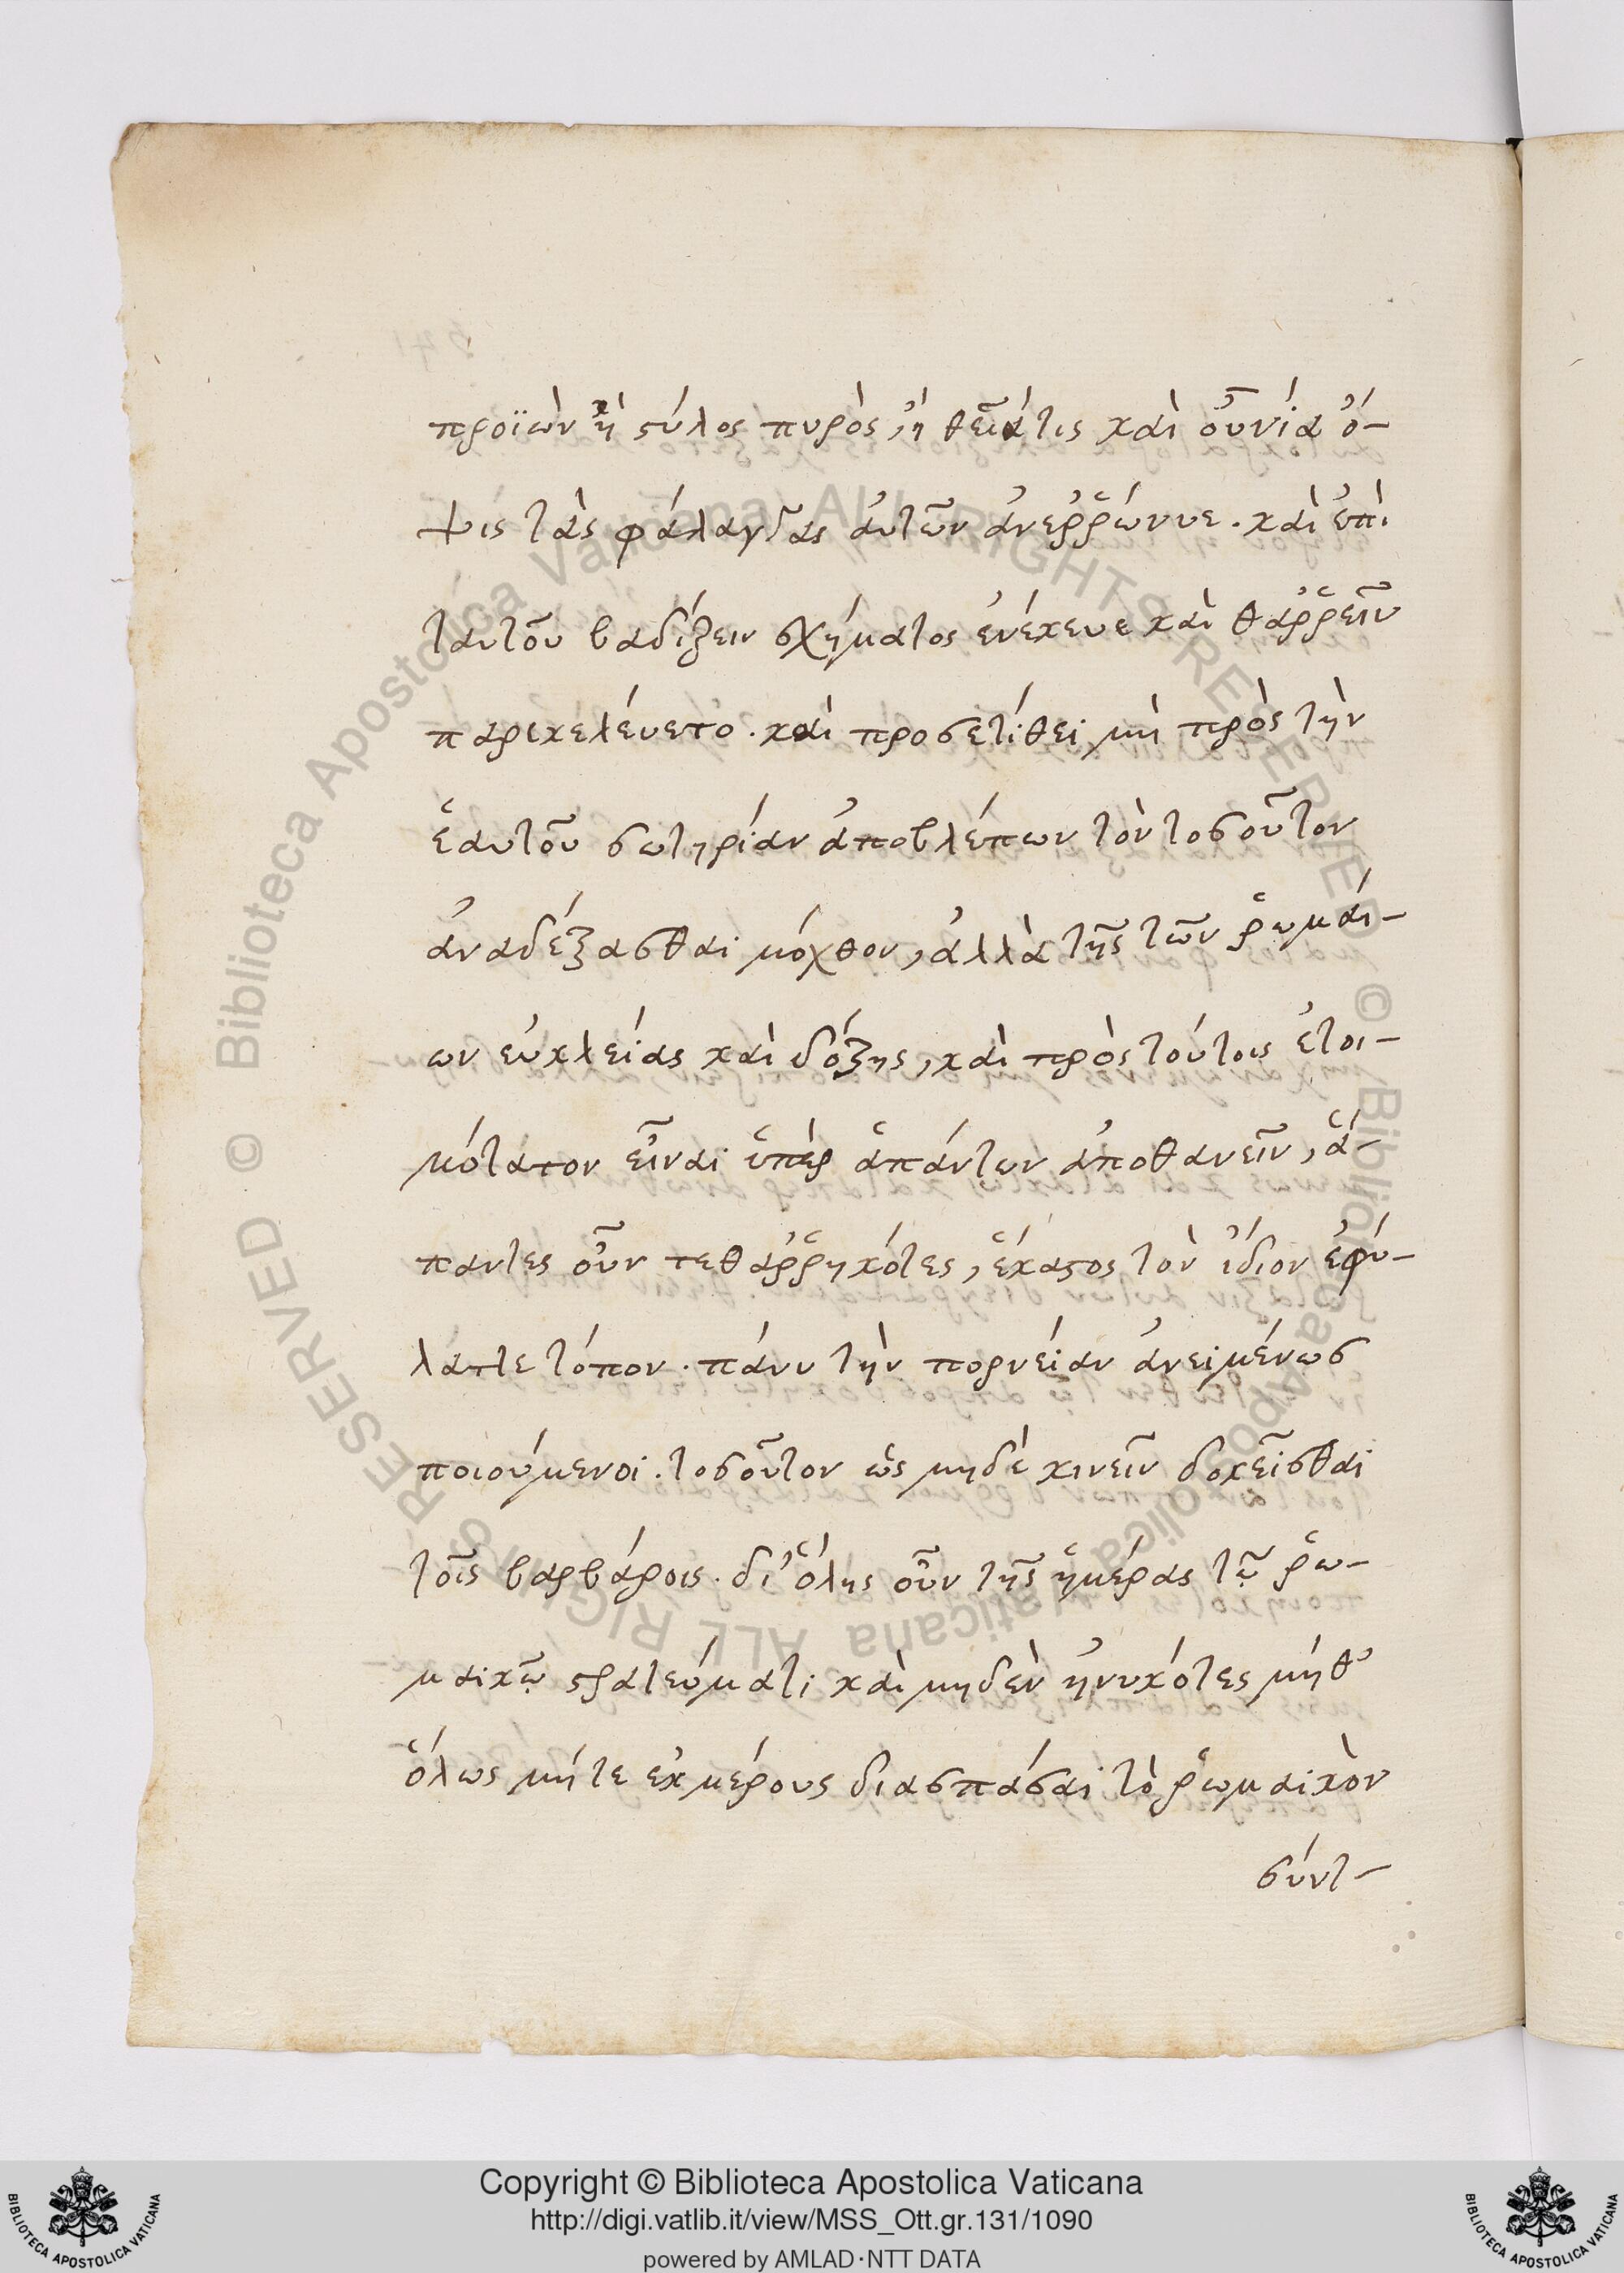 προϊὼν ἢ στύλος πυρὸς, ἢ θεῖά τις καὶ οὐνία ὄ-
ψις τὰς φάλαγγας ἀυτῶν ἀνεῤῥώννυε. καὶ ἐπὶ
ταυτοῦ βαδίζειν σχήματος ἐνέκευε καὶ θαῤῥεῖν
παρεκελέυετο. καὶ προσετίθει μὴ πρὸς τὴν
ἑαυτοῦ σωτηρίαν ἀποβλέπων τὸν τοσοῦτον
ἀναδέξασθαι μόχθον, ἀλλὰ τῆς τῶν ῥωμαί-
ων εὐκλείας καὶ δόξης, καὶ πρὸς τούτοις ἐτοι-
μότατον εἶναι ὑπὲρ ἁπάντων ἀποθανεῖν, ἅ-
παντες οὖν τεθαῤῥηκότες, ἕκαστος τὸν ἴδιον ἐφύ-
λαττε τόπον. πάνυ τὴν πορνείαν ἀνειμένως
ποιούμενοι. τοσοῦτον ὡς μηδὲ κινεῖν δοκεῖσθαι
τοῖς βαρβάροις. δι' ὅλης οὖν τῆς ἡμέρας τῷ ῥω-
μαικῷ στρατεύματι καὶ μηδὲν ἠνυκότες μήθ'
ὅλως μήτε ἐκ μέρους διασπάσαι τὸ ῥωμαικὸν
σύντ-
Copyright © Biblioteca Apostolica Vaticana
http://digi.vatlib.it/view/MSS_Ott.gr.131/1090
powered by AMLAD·NTT DATA